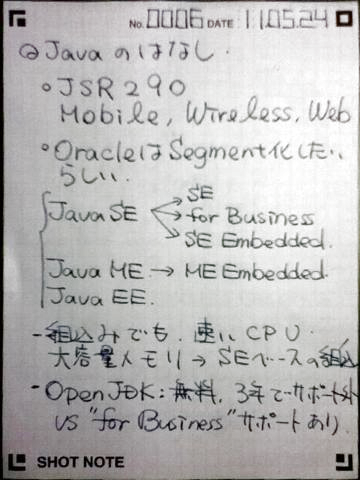 No. 0006 DATE 11.05.24
Javaのはなし.
JSR290
Mobile, Wireless, Web
OracleはSegment化したい
らしい.
Java SE → SE
→ for Business
→ SE Embedded.
Java ME → ME Embedded.
Java EE.
- 組込みでも. 速い CPU.
大容量メモリ → SEベースの組込
- OpenJDK: 無料, 3年でサポート外
vs "for Business" サポートあり.
SHOT NOTE